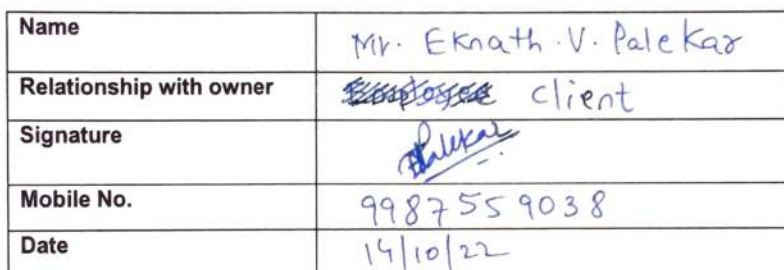 Name Mr. Eknath .V. Palekar
Relationship with owner Employee Client
Signature Palekar
Mobile No. 9987559038
Date 14/10/22